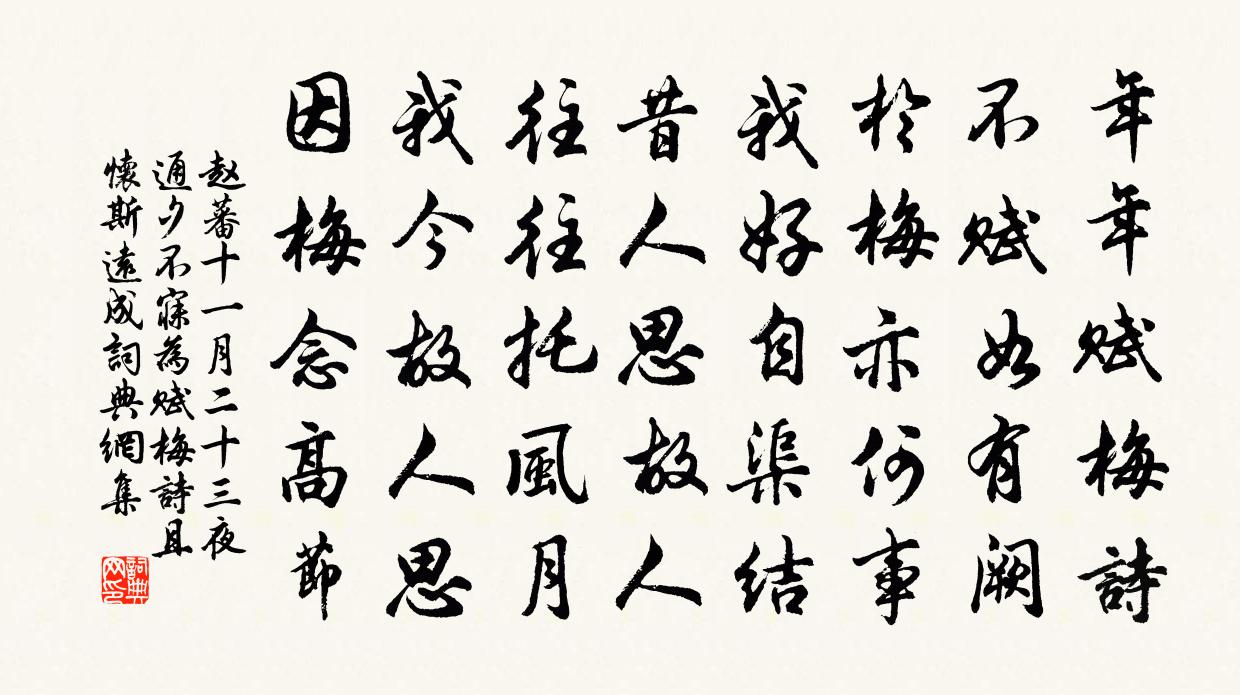 年年賦梅詩
不賦如有闕
於梅亦何事
我好自渠结
昔人思故人
往往托風月
我今故人思
因梅念高節
赵蕃十一月二十三夜
通夕不寐為賦梅詩且
懷斯遠成詞典網集
詞典网印